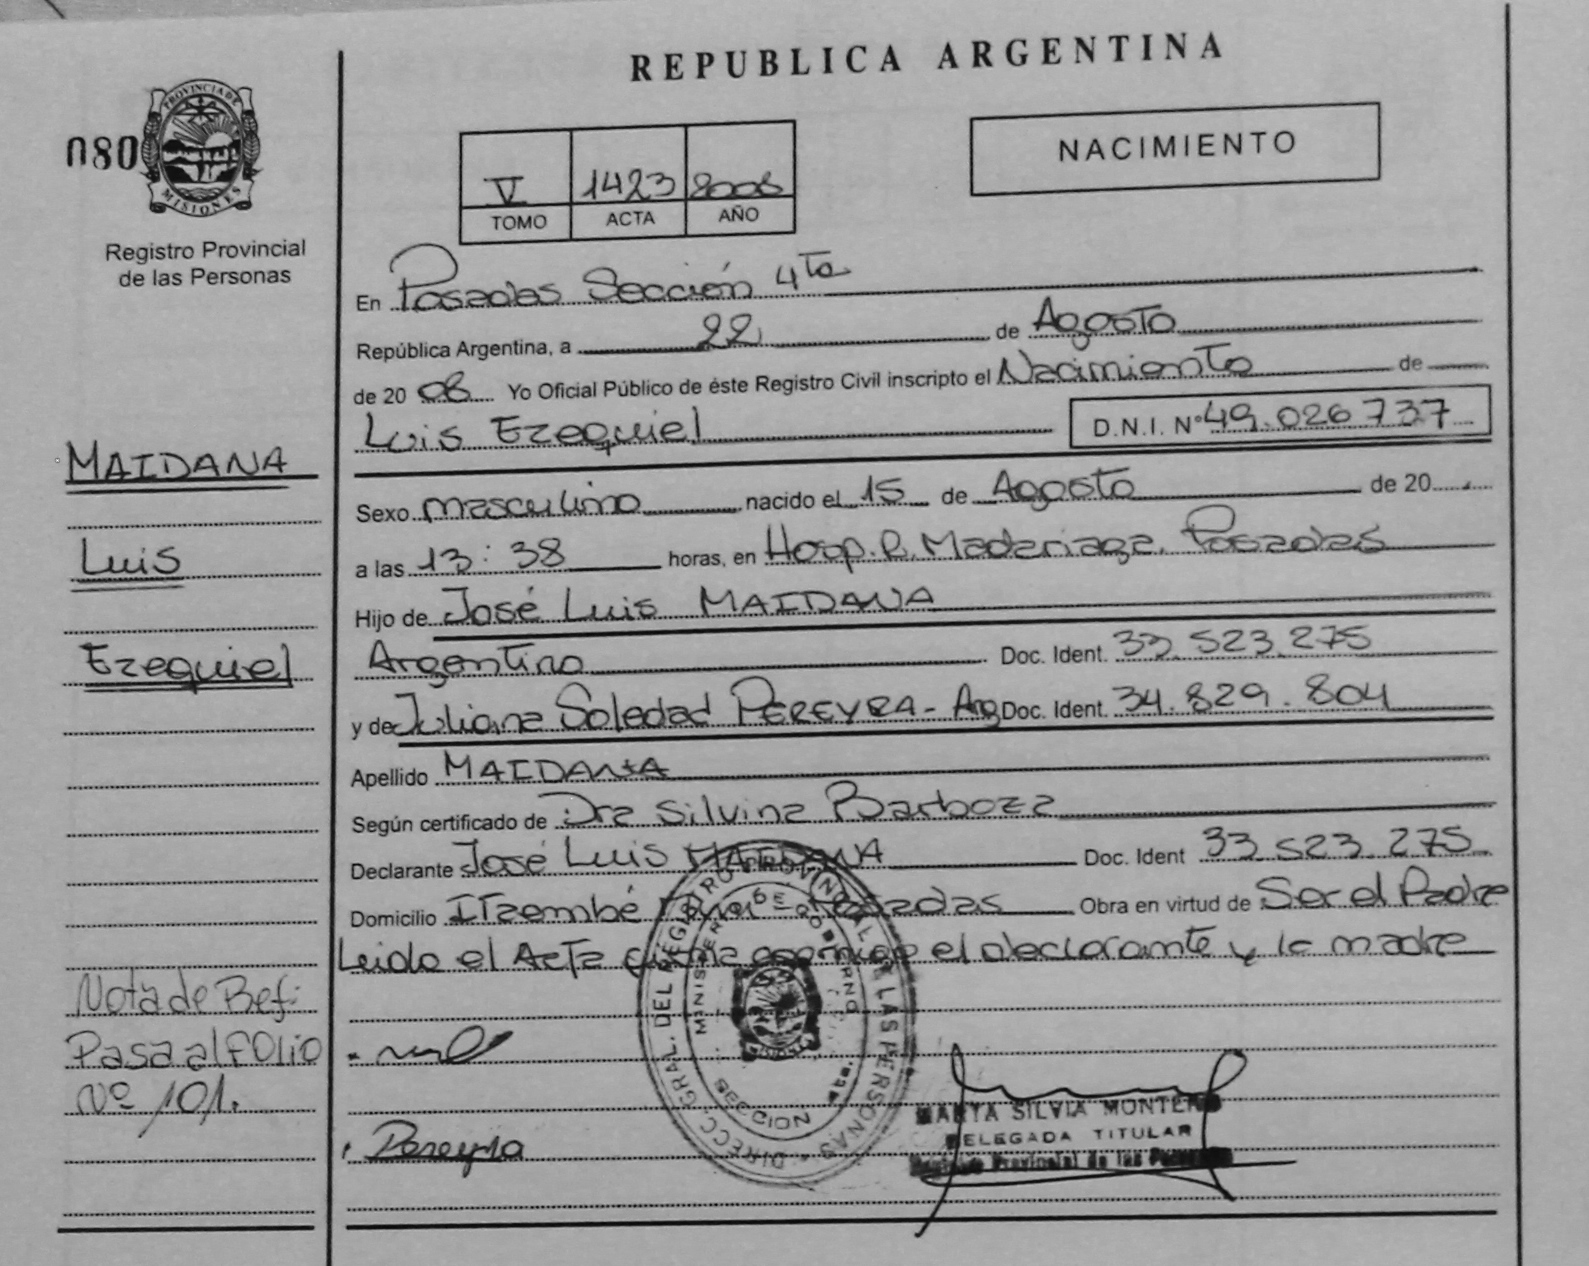 REPUBLICA ARGENTINA
PROVINCIA DE
MISIONES
080
Registro Provincial
de las Personas
V 1423 2008
TOMO ACTA AÑO
NACIMIENTO
En Posadas Sección 4ta
República Argentina, a 22 de Agosto
de 20 08 Yo Oficial Público de éste Registro Civil inscripto el Nacimiento de
Luis Ezequiel D.N.I. N° 49.026737
MAIDANA
Luis
Ezequiel
Sexo masculino nacido el 15 de Agosto de 20
a las 13:38 horas, en Hosp. R. Madariaga. Posadas
Hijo de José Luis MAIDANA
Argentino Doc. Ident. 33.523.275
y de Juliana Soledad PEREYRA - Arg Doc. Ident. 34.829.804
Apellido MAIDANA
Según certificado de Dra Silvina Barboza
Declarante José Luis MAIDANA Doc. Ident 33 523.275
Domicilio Itaembé Posadas Obra en virtud de Ser el Padre
Leido el Acta el declarante y la madre
Nota de Ref:
Pasa al folio
Nº 101.
Pereyra
DIRECC. GRAL. DEL REGISTRO PROVINCIAL DE LAS PERSONAS
MINISTERIO DE GOBIERNO
SECCION 4ta.
MISIONES
MARTA SILVIA MONTERO
DELEGADA TITULAR
Registro Provincial de las Personas